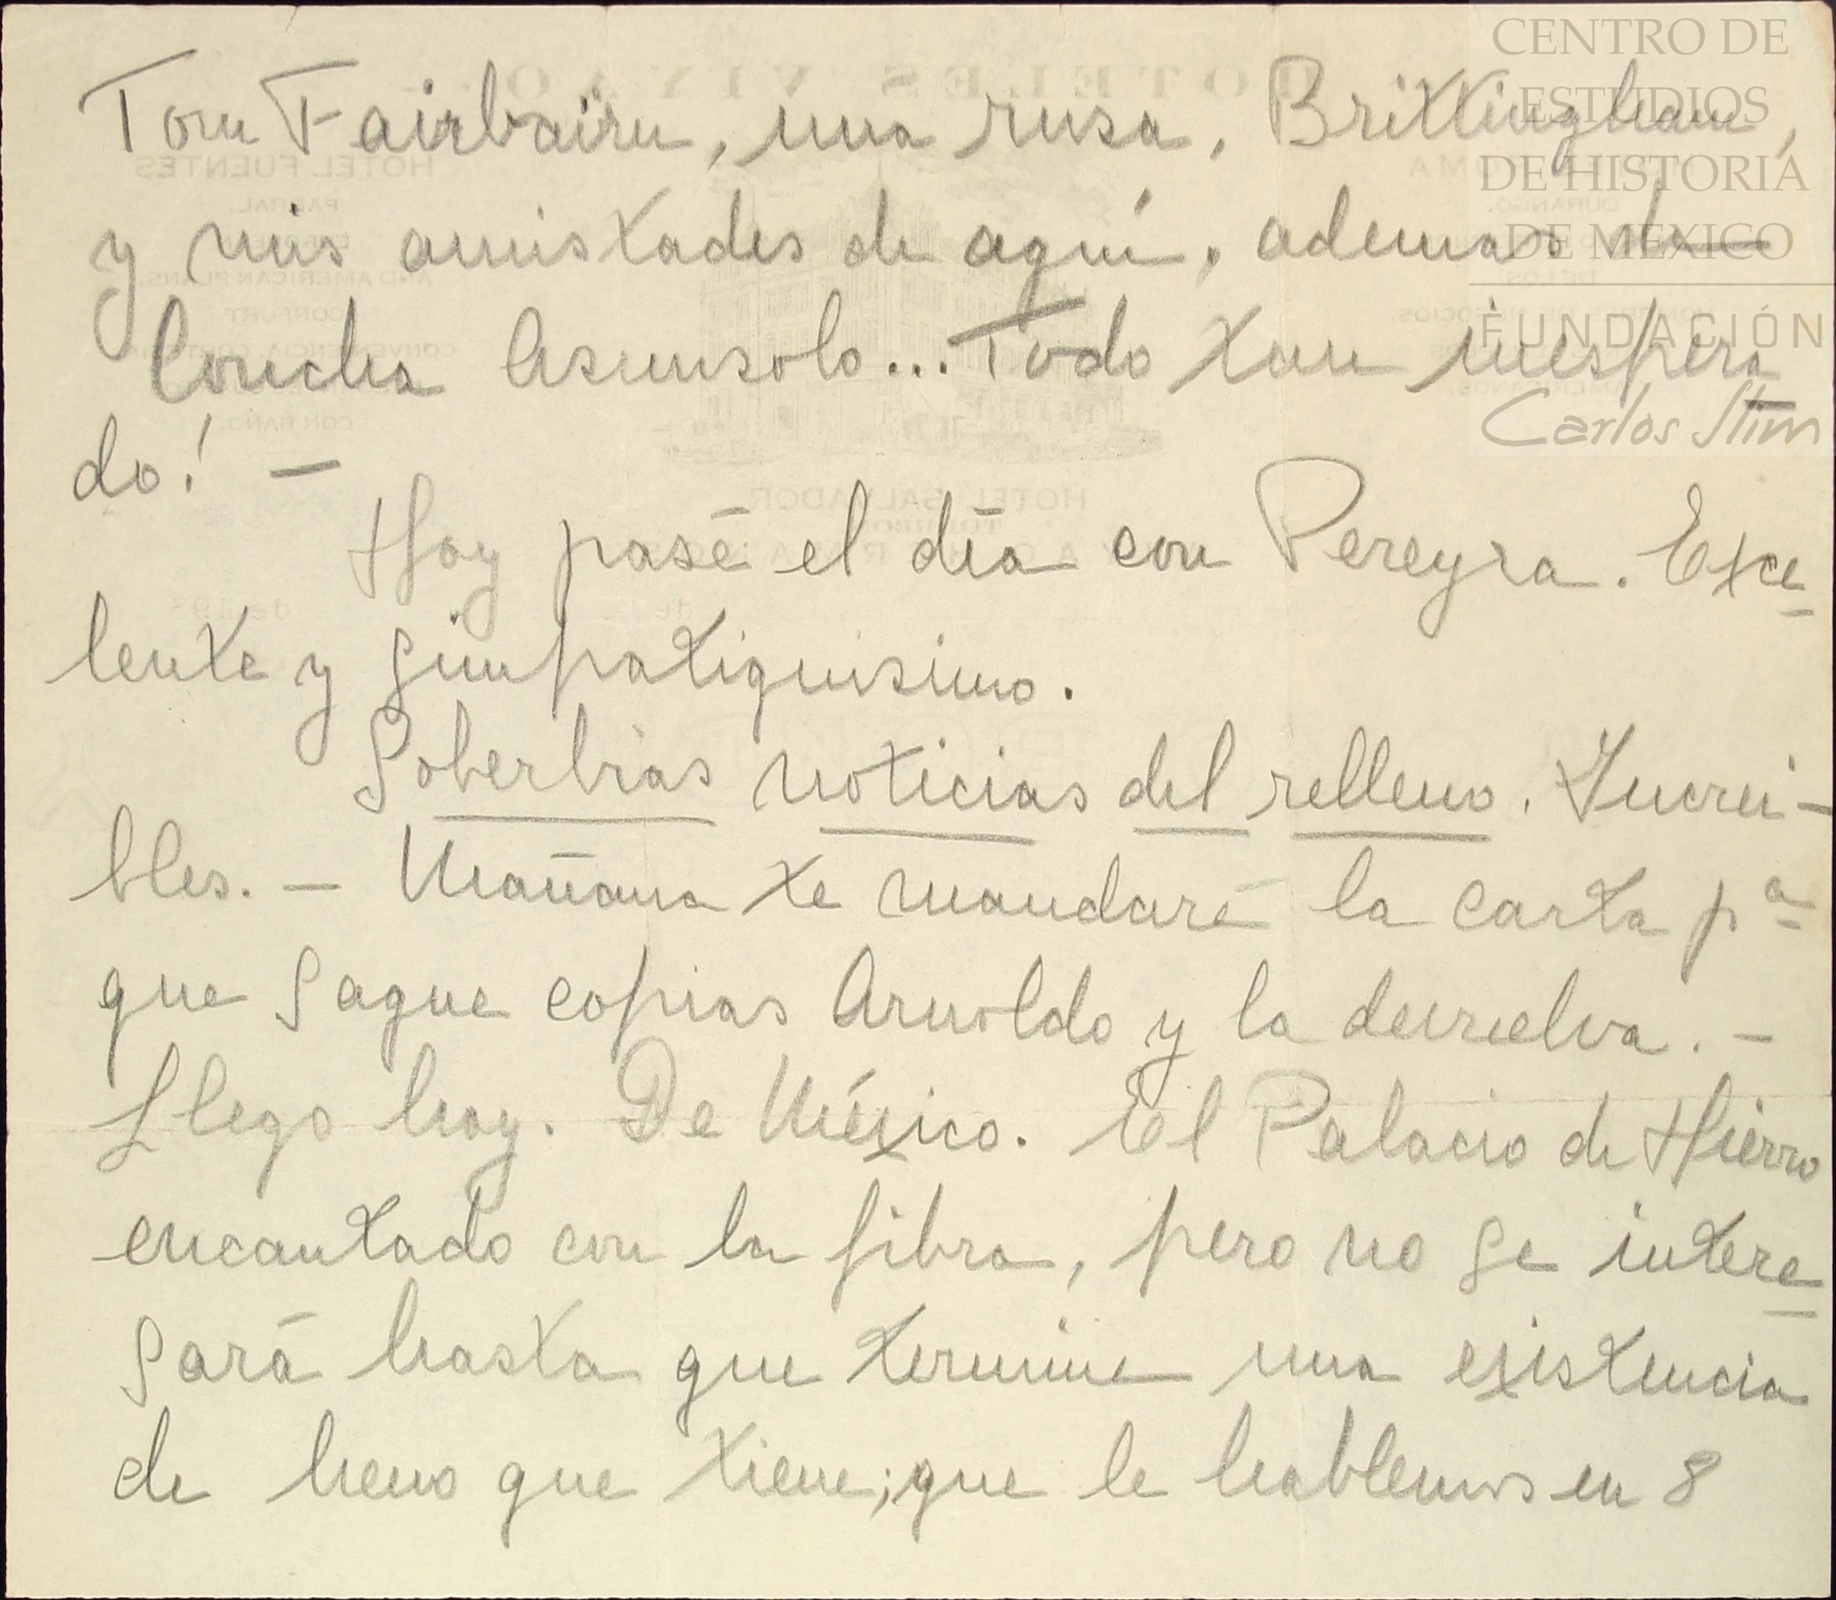 CENTRO DE
ESTUDIOS
DE HISTORIA
DE MEXICO
FUNDACIÓN
Carlos Slim
Tom Fairbairn, una rusa, Brittingham,
y mis amistades de aquí, ademas de
Concha Asunsolo... Todo tan inespera
do! —
Hoy pasé el día con Pereyra. Exce
lente y simpatiquisimo.
Soberbias noticias del relleno. Increi-
bles. — Mañana te mandaré la carta pª
que saque copias Arnoldo y la devuelva. —
Llego hoy. De México. El Palacio de Hierro
encantado con la fibra, pero no se intere
sará hasta que termine una existencia
de heno que tiene; que le hablemos en 8
HOTELES VIYAO
HOTEL FUENTES
PARRAL.
AND AMERICAN PLANS.
CONFORT
CON BAÑO.
DURANGO.
HOTEL SALVADOR
TORREON
de 193